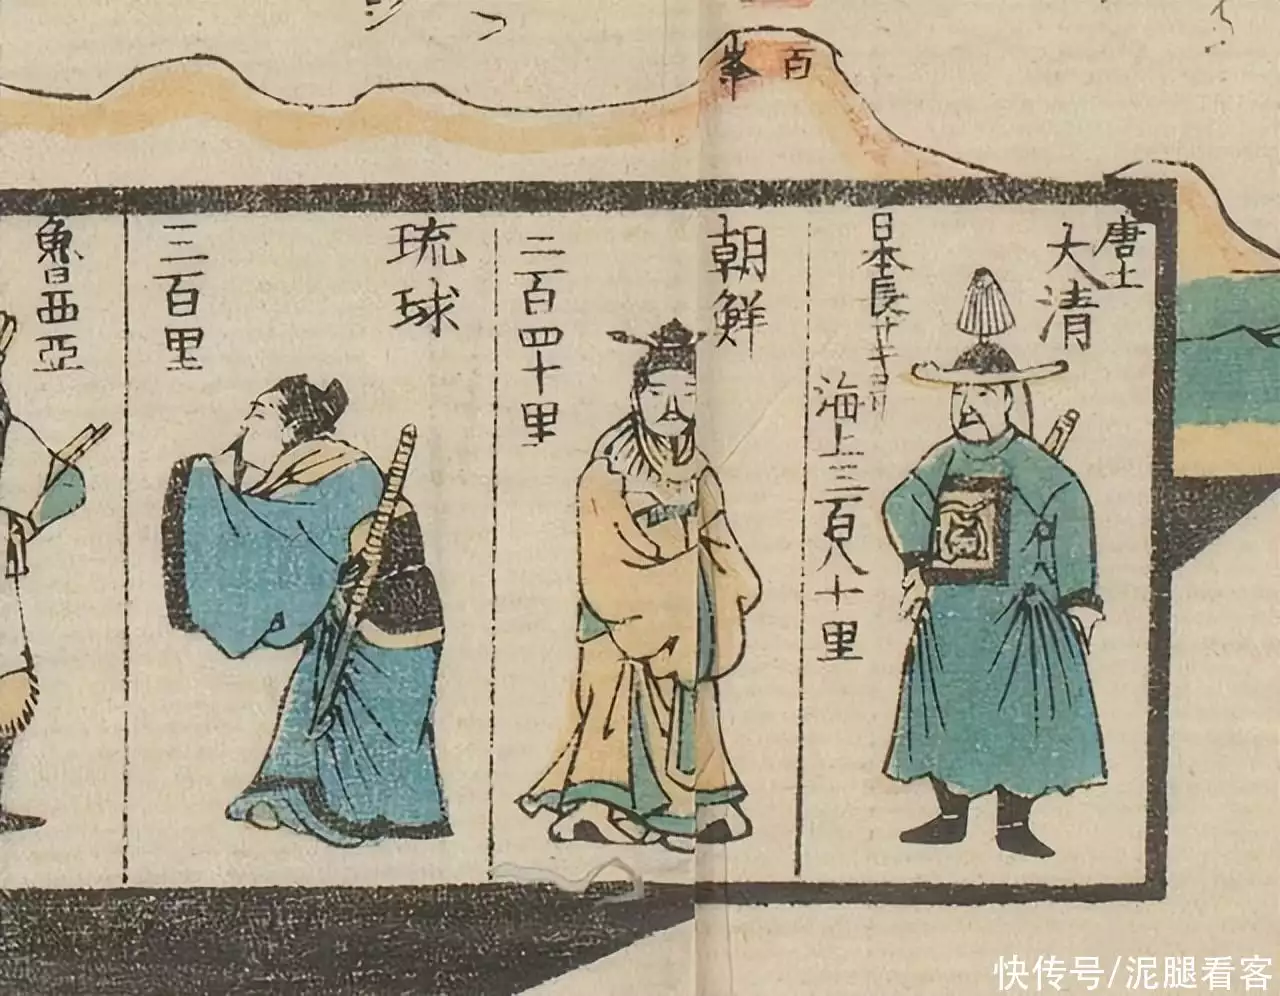 百峯
唐土
大清
日本長サキヨリ
海上三百八十里
朝鮮
二百四十里
琉球
三百里
魯西亞
快传号/泥腿看客